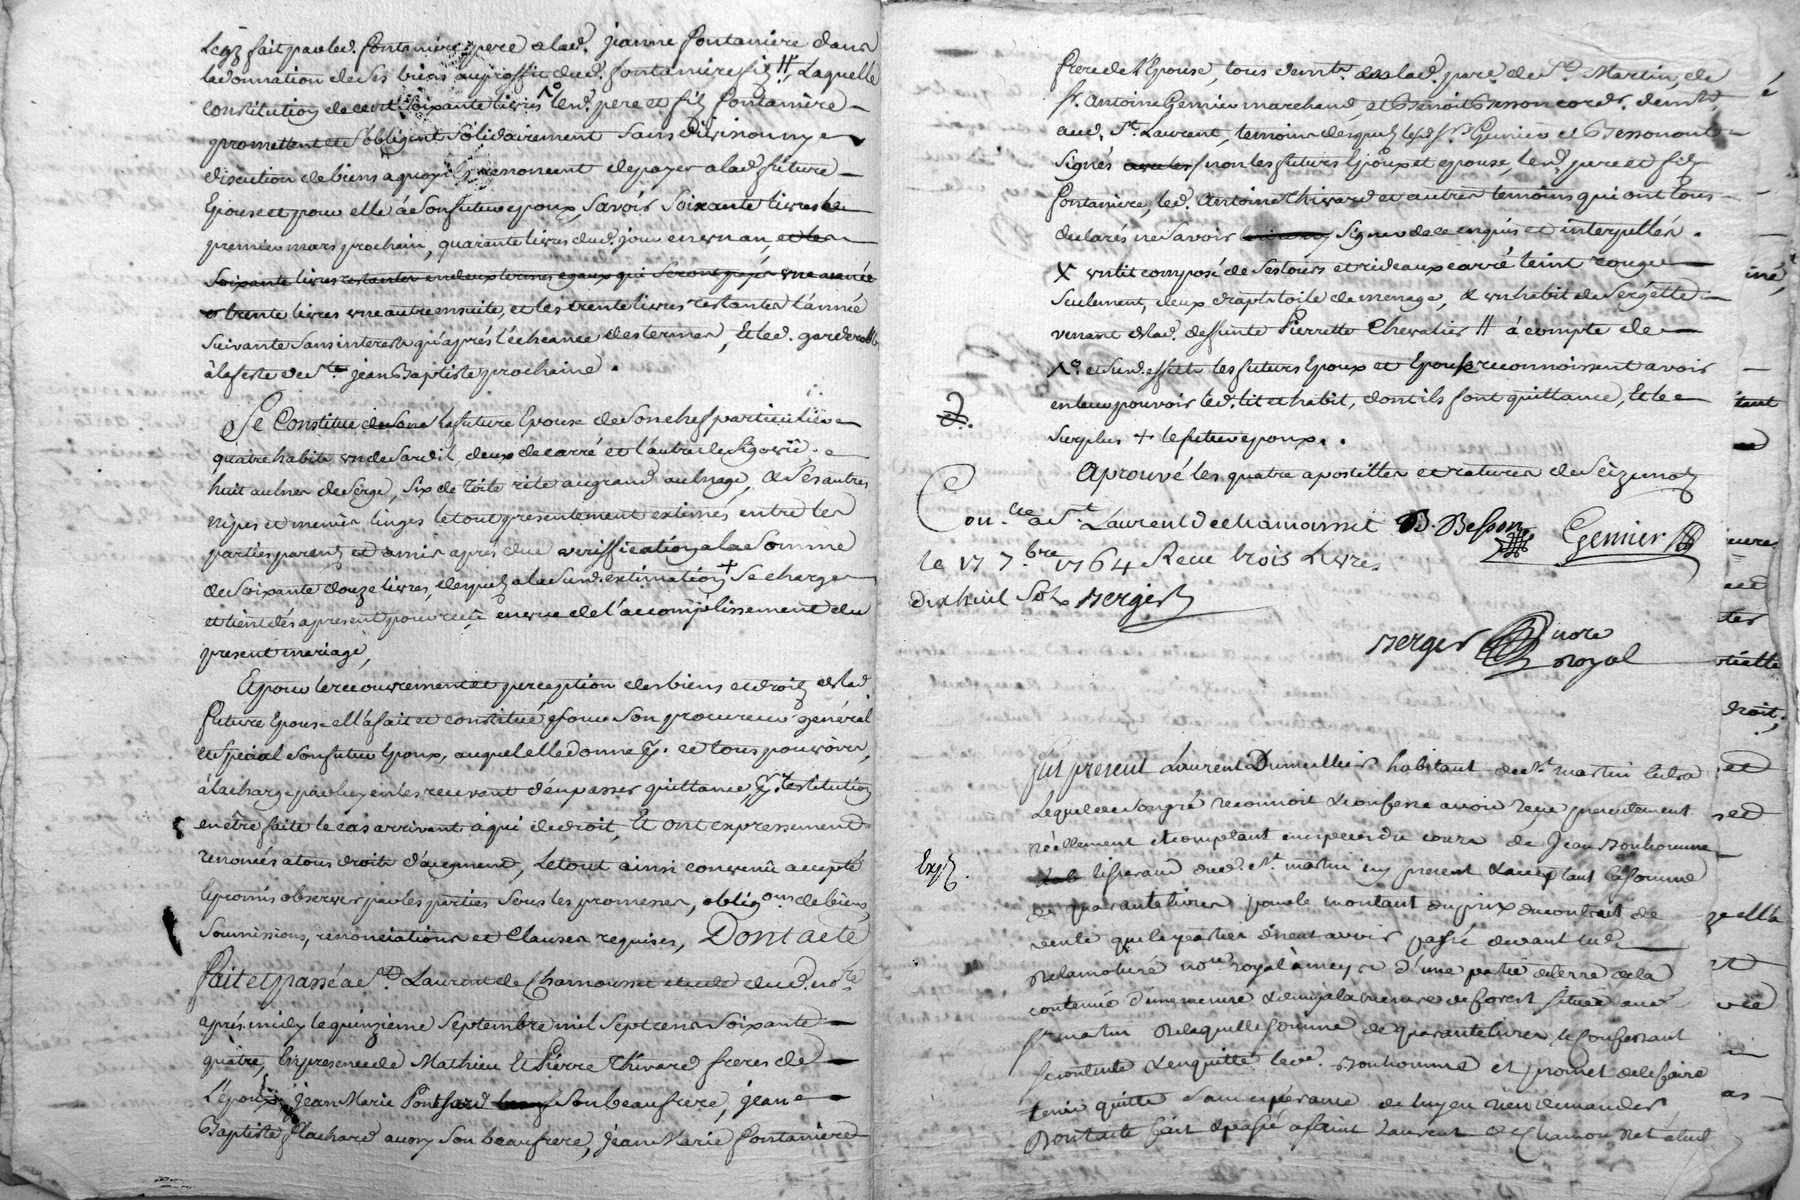 Legs fait par led. fontaniere pere a lad. jeanne fontaniere dans
la donnation de ses biens au proffit dud. fontaniere fils // Laquelle
constitution de cent soixante livres led. pere et fils fontaniere
promettent et s'obligent solidairement sans division ny
discution de biens a quoy ils renoncent de payer a lad. future
Epouse et pour elle à son futur epoux, savoir soixante livres le
premier mars prochain, quarante livres dud. jour en un an, et les
soixante livres restantes en deux termes egaux qui seront payés une année
trente livres une autre ensuite, et les trente livres restantes l'année
suivante sans interest qu'après l'écheance des termes, Et led. garderobbe
à la feste de St. jean Baptiste prochaine.
Se Constitue la future Epouse de son chef particulier
quatre habits un de sardis, deux de carré et l'autre de
huit aulnes de serge, six de toile rite au grand aulnage, & ses autres
nipes et menus linges le tout presentement estimés entre les
parties parents et amis apres due veriffication a la somme
de soixante douze livres, desquels a lad. susd. estimation + se charge
et tient dès apresent pour reçu en vue de l'accomplissement du
present mariage,
Et pour le recouvrement et perception des biens et droits de lad.
future Epouse elle a fait et constitué pour son procureur général
et special son futur Epoux, auquel elle donne tous pouvoirs,
à la charge par luy en les recevant d'en passer quittance, restitution
en être faite le cas arrivant à qui de droit, Et ont expressement
renoncés a tous droits d'augment, Le tout ainsi convenû accepté
et promis observer par les parties sous les promesses, oblig.ons de biens,
soumissions, renonciations et clauses requises, Dont acte
fait et passé a St. Laurent de Chamousset etude dud. no.re
après midy le quinzieme septembre mil sept cens soixante
quatre, En presence de Mathieu Et Pierre Thivard freres de
L'epoux, jean Marie Ponthard son beaufrere, jean
Baptiste flachard aussy son beaufrere, jean Marie fontaniere
frere de l'Epouse, tous demts. de lad. par. de St. Martin, de
sr. Antoine Gemier marchand, et Benoit Besson cord. demts.
aud. St. Laurent, temoins desquels lesd. srs. Gemier et Besson ont
signés non les futurs Epoux et epouse, led. pere et fils
fontaniere, led. Antoine Thivard et autres temoins qui ont tous
declarés ne savoir signer de ce enquis et interpellés.
X un lit composé de ses tours et rideaux carré teint rouge
seulement, deux draps toile de menage, & un habit de sergette
venant de lad. deffunte Pierrette Chevalier // à compte de
susd. effets les futurs Epoux et Epouse reconnoissent avoir
en leur pouvoir led. lit et habit, dont ils font quittance, Et le
surplus + le futur epoux.
Aprouvé les quatre apostilles et ratures de seize mots
Con.lée a St. Laurent de chamousset B. Besson Gemier
le 17 7.bre 1764 Reçu trois Livres
dix huit Sols Berger
Berger no.re
royal
fut present Laurent Dumillier habitant de St. martin
Lequel de son gré reconnoit & confesse avoir reçu presentement
réellement & comptant en especes du cours de Jean Bonhomme
Exp.
tisserand dud. St. martin icy present & acceptant la somme
de quarante livres pour le montant du prix du contrat de
vente que les parties disent avoir passé devant
Delamoturé no.re royal à meys d'une partie de terre de la
contenue d'une mesure & demy a la mesure de forest située aud.
st. martin de laquelle somme de quarante livres le confessant
se contente & en quitte led. Bonhomme et promet de le faire
tenir quitte sans esperance de luy en rien demander
Dont acte fait & passé a saint Laurent de Chamousset etude